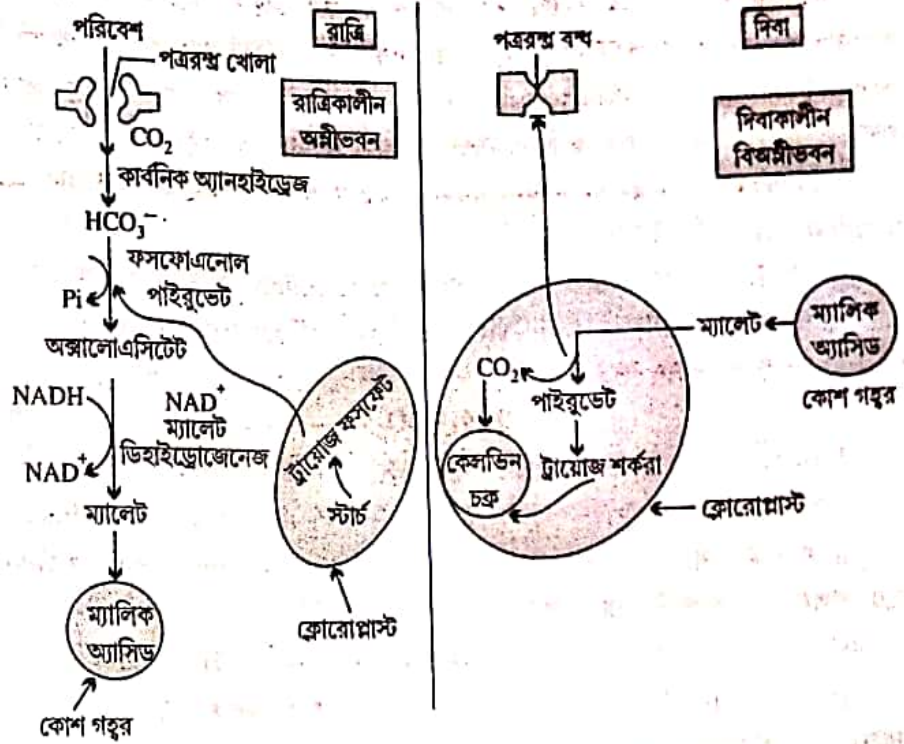 পরিবেশ
রাত্রি
পত্ররন্ধ্র খোলা
রাত্রিকালীন
অম্লীভবন
CO₂
কার্বনিক অ্যানহাইড্রেজ
HCO₃⁻
ফসফোএনোল
পাইরুভেট
Pi
অক্সালোএসিটেট
NADH
NAD⁺
ম্যালেট
ডিহাইড্রোজেনেজ
NAD⁺
ম্যালেট
ট্রায়োজ ফসফেট
স্টার্চ
ক্লোরোপ্লাস্ট
ম্যালিক
অ্যাসিড
কোশ গহ্বর
পত্ররন্ধ্র বন্ধ
দিবা
দিবাকালীন
বিঅম্লীভবন
ম্যালেট
ম্যালিক
অ্যাসিড
কোশ গহ্বর
CO₂
পাইরুভেট
কেলভিন
চক্র
ট্রায়োজ শর্করা
ক্লোরোপ্লাস্ট